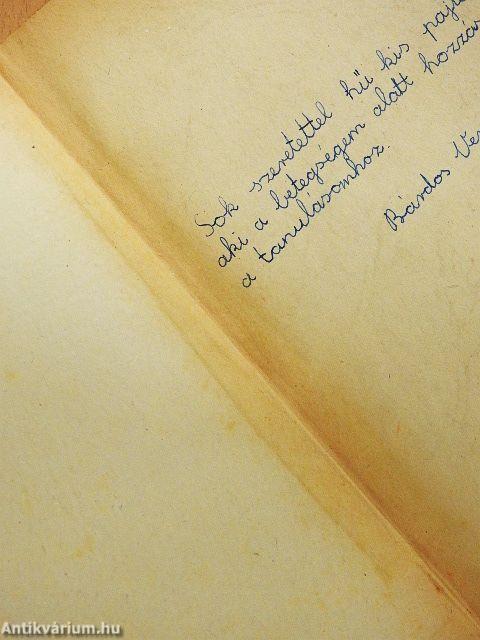 Sok szeretettel hű kis
aki a betegségem alatt
a tanulásomhoz.
Bárdos
Antikvárium.hu